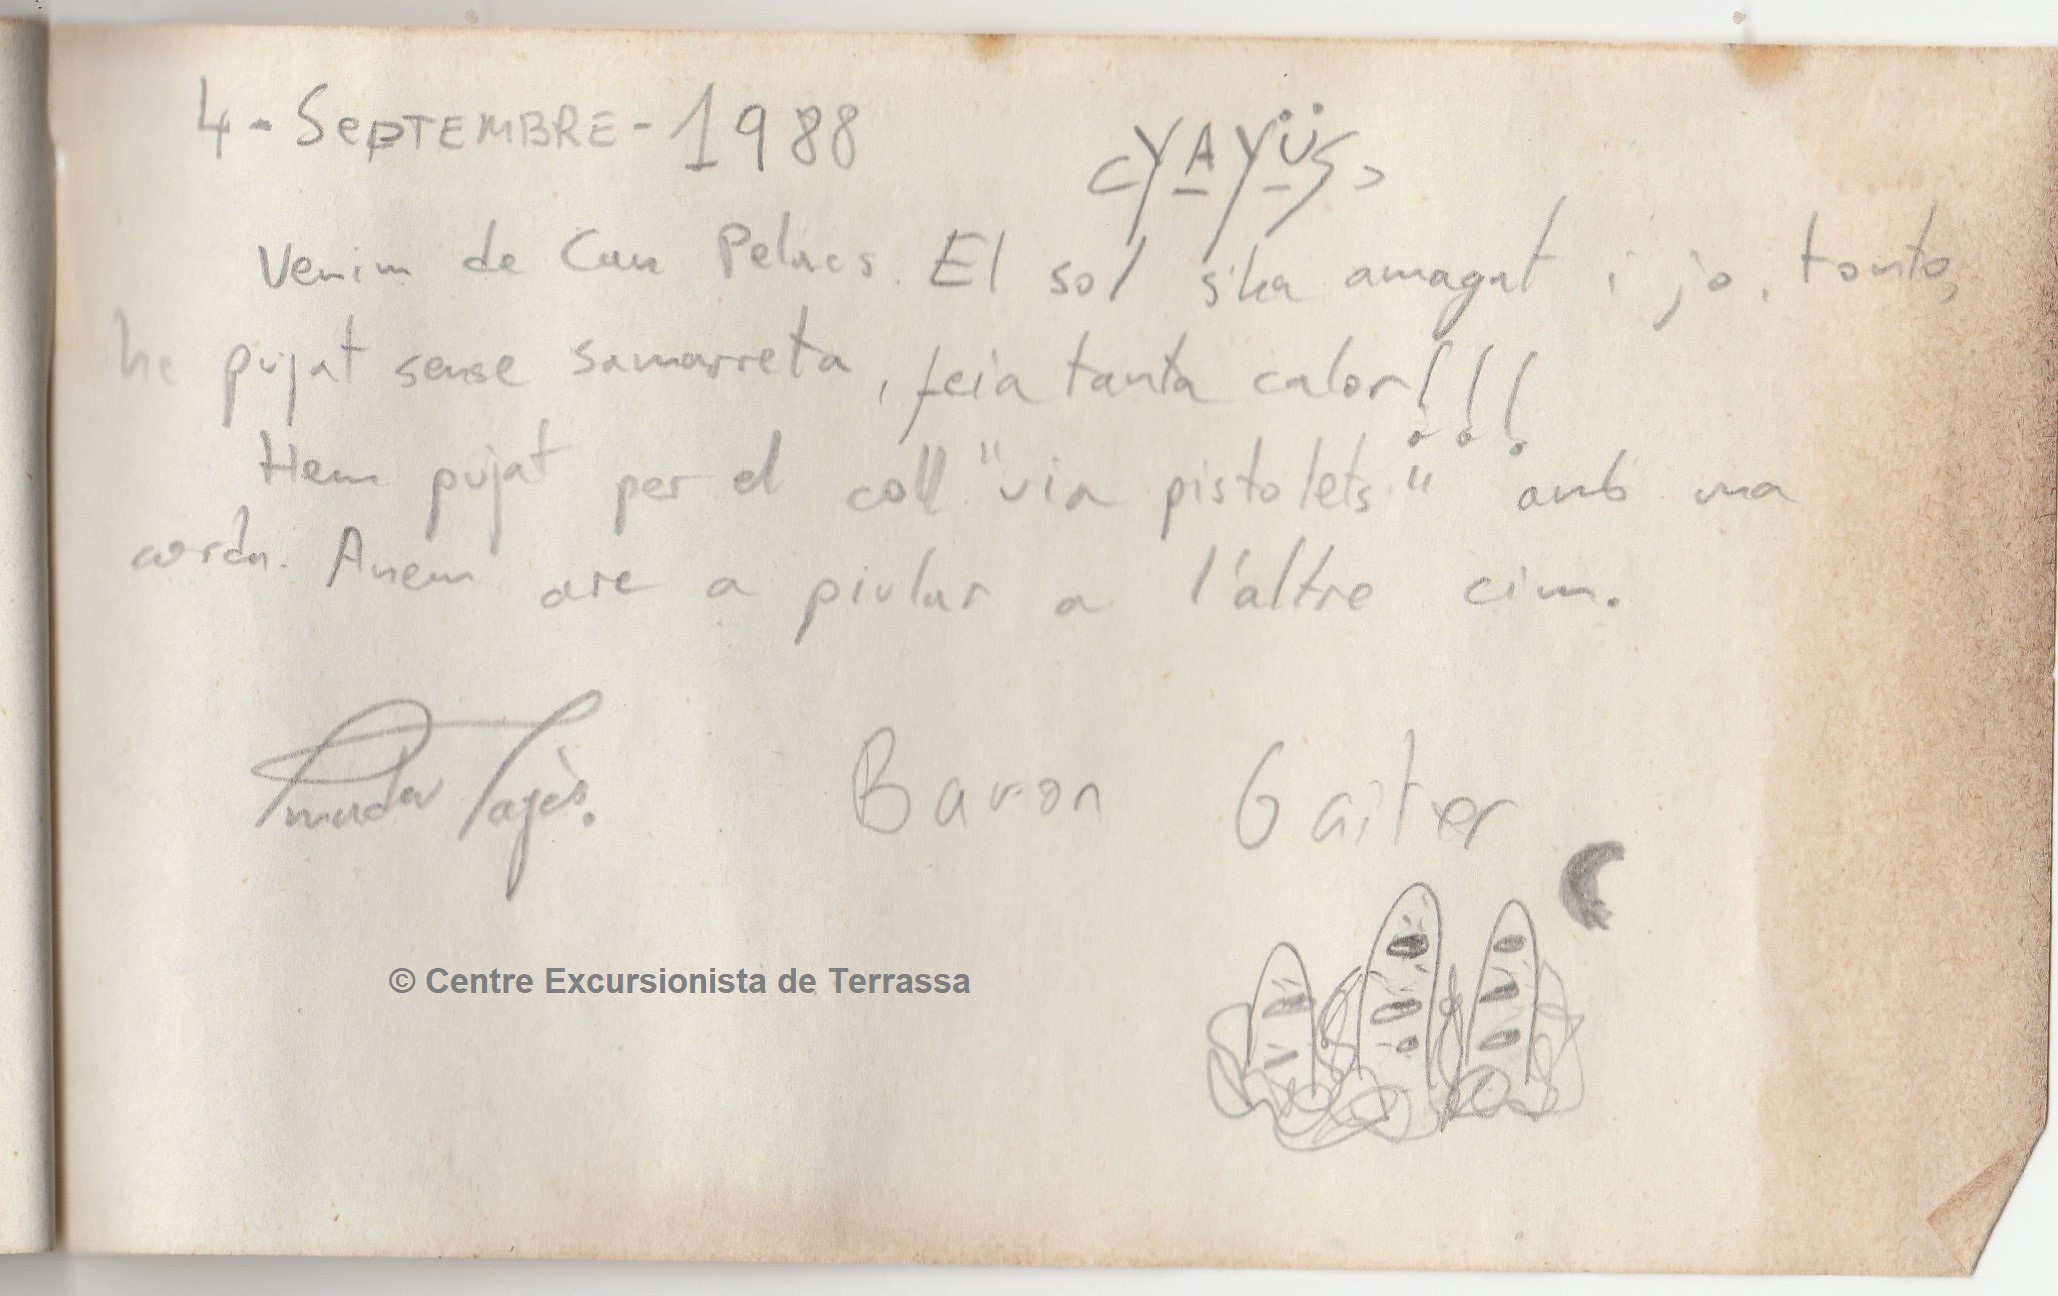 4 - SEPTEMBRE - 1988
<YAYÜS>
Venim de Can Pelacs. El sol s'ha amagat i jo, tonto,
he pujat sense samarreta, feia tanta calor!!!
Hem pujat per el coll "via pistolets" amb una
corda. Anem are a piular a l'altre cim.
Pagès.
Baron Gaiter
© Centre Excursionista de Terrassa